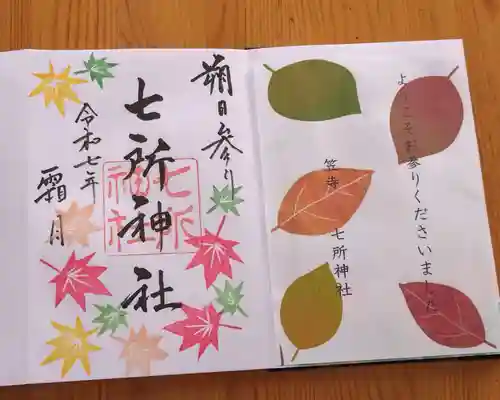 よーこそお参りくださいました
笠寺
七所神社
朔日参り
七所神社
七所神社
令和七年
霜月